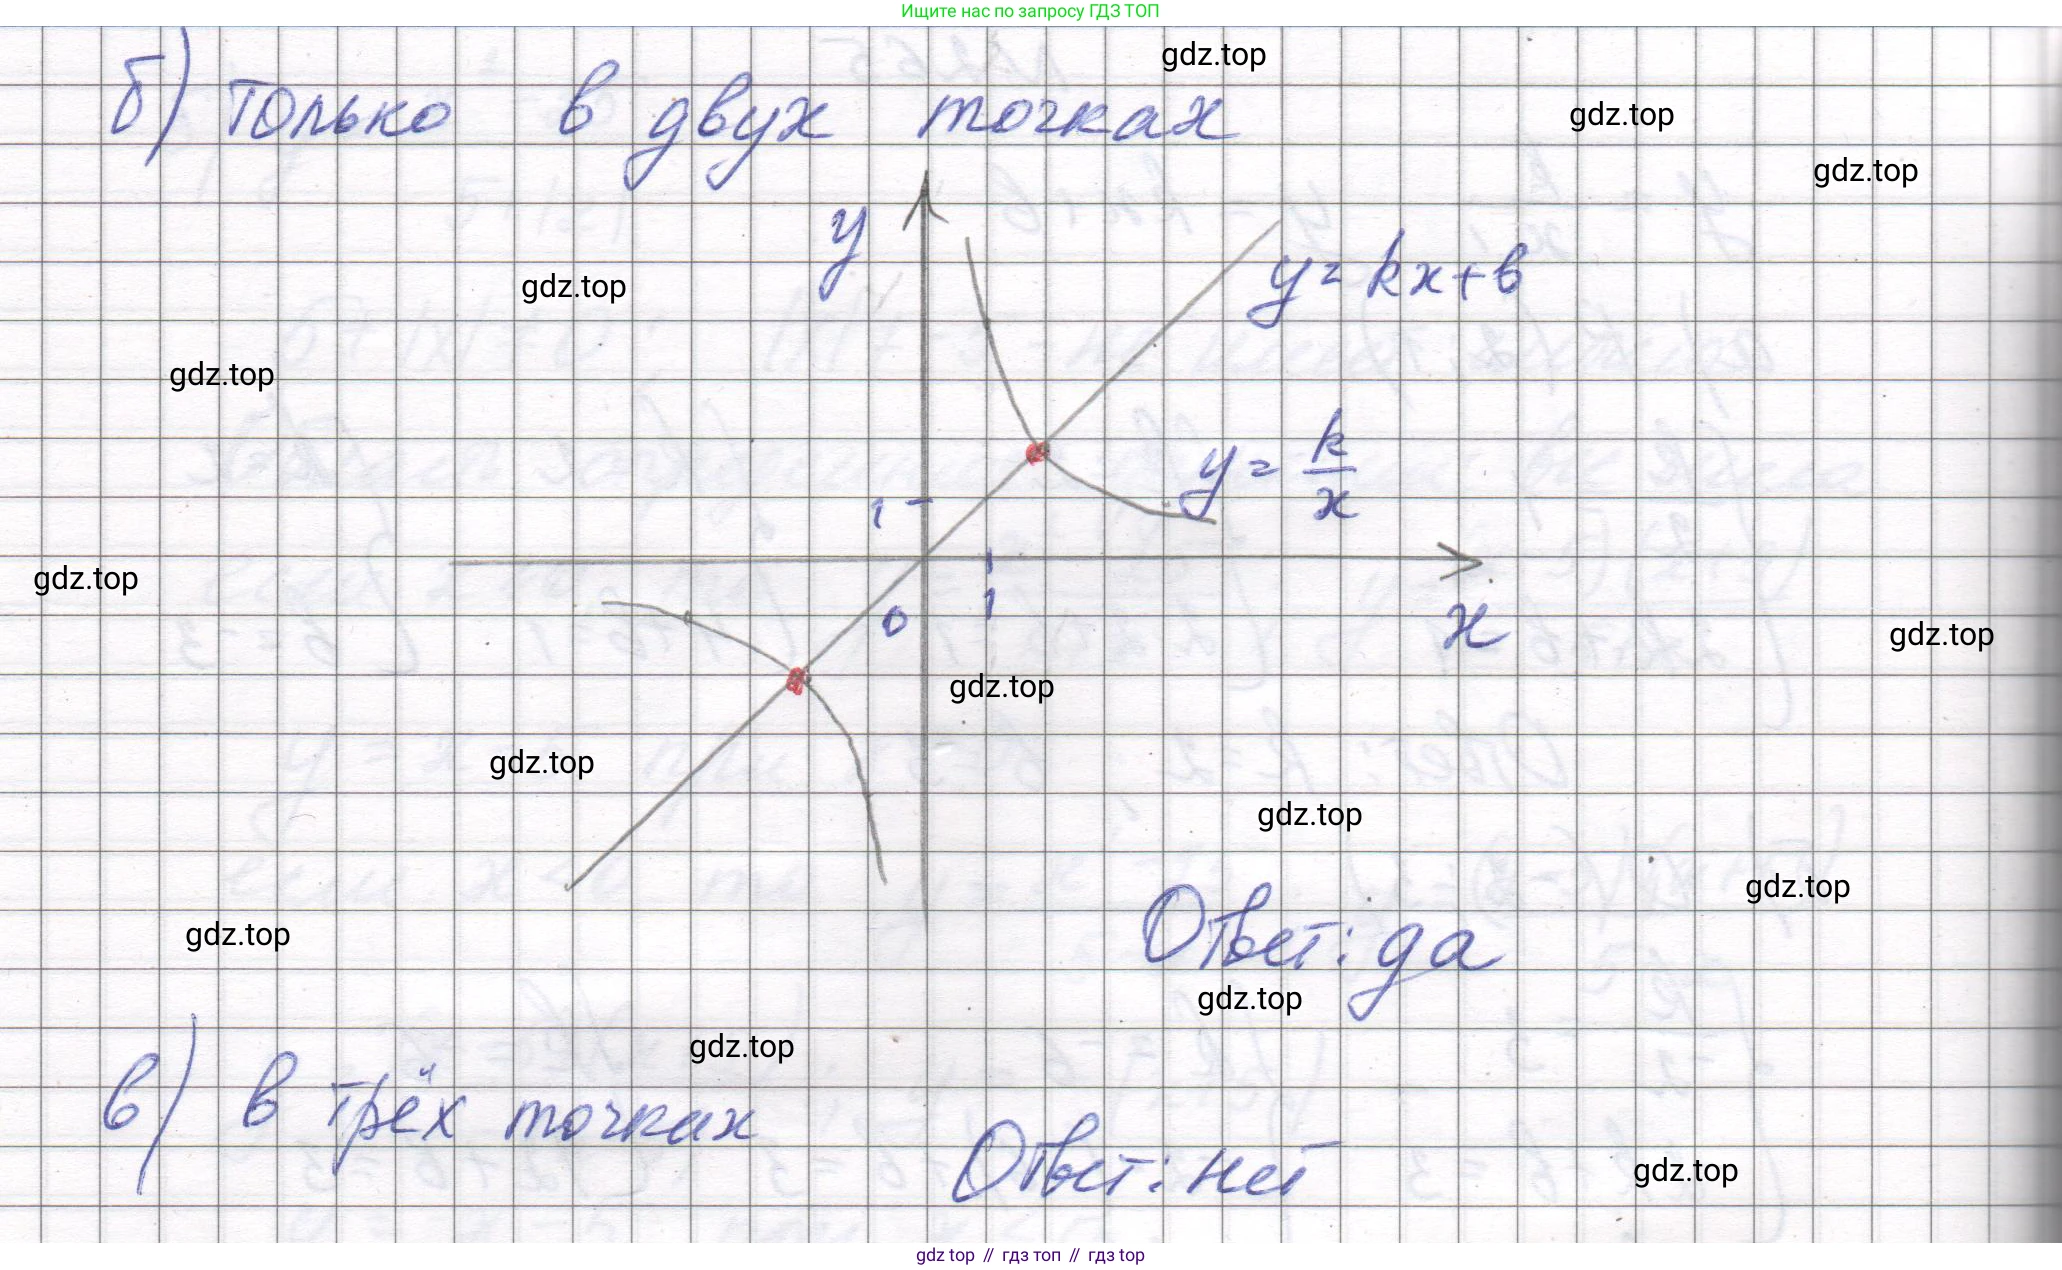 Ищите нас по запросу ГДЗ ТОП
gdz.top
б) только в двух точках
gdz.top
gdz.top
y
y = kx + b
gdz.top
gdz.top
y = k/x
1
gdz.top
0
1
x
gdz.top
gdz.top
gdz.top
gdz.top
gdz.top
gdz.top
Ответ: да
gdz.top
gdz.top
в) в трёх точках
Ответ: нет
gdz.top
gdz top // гдз топ // gdz top